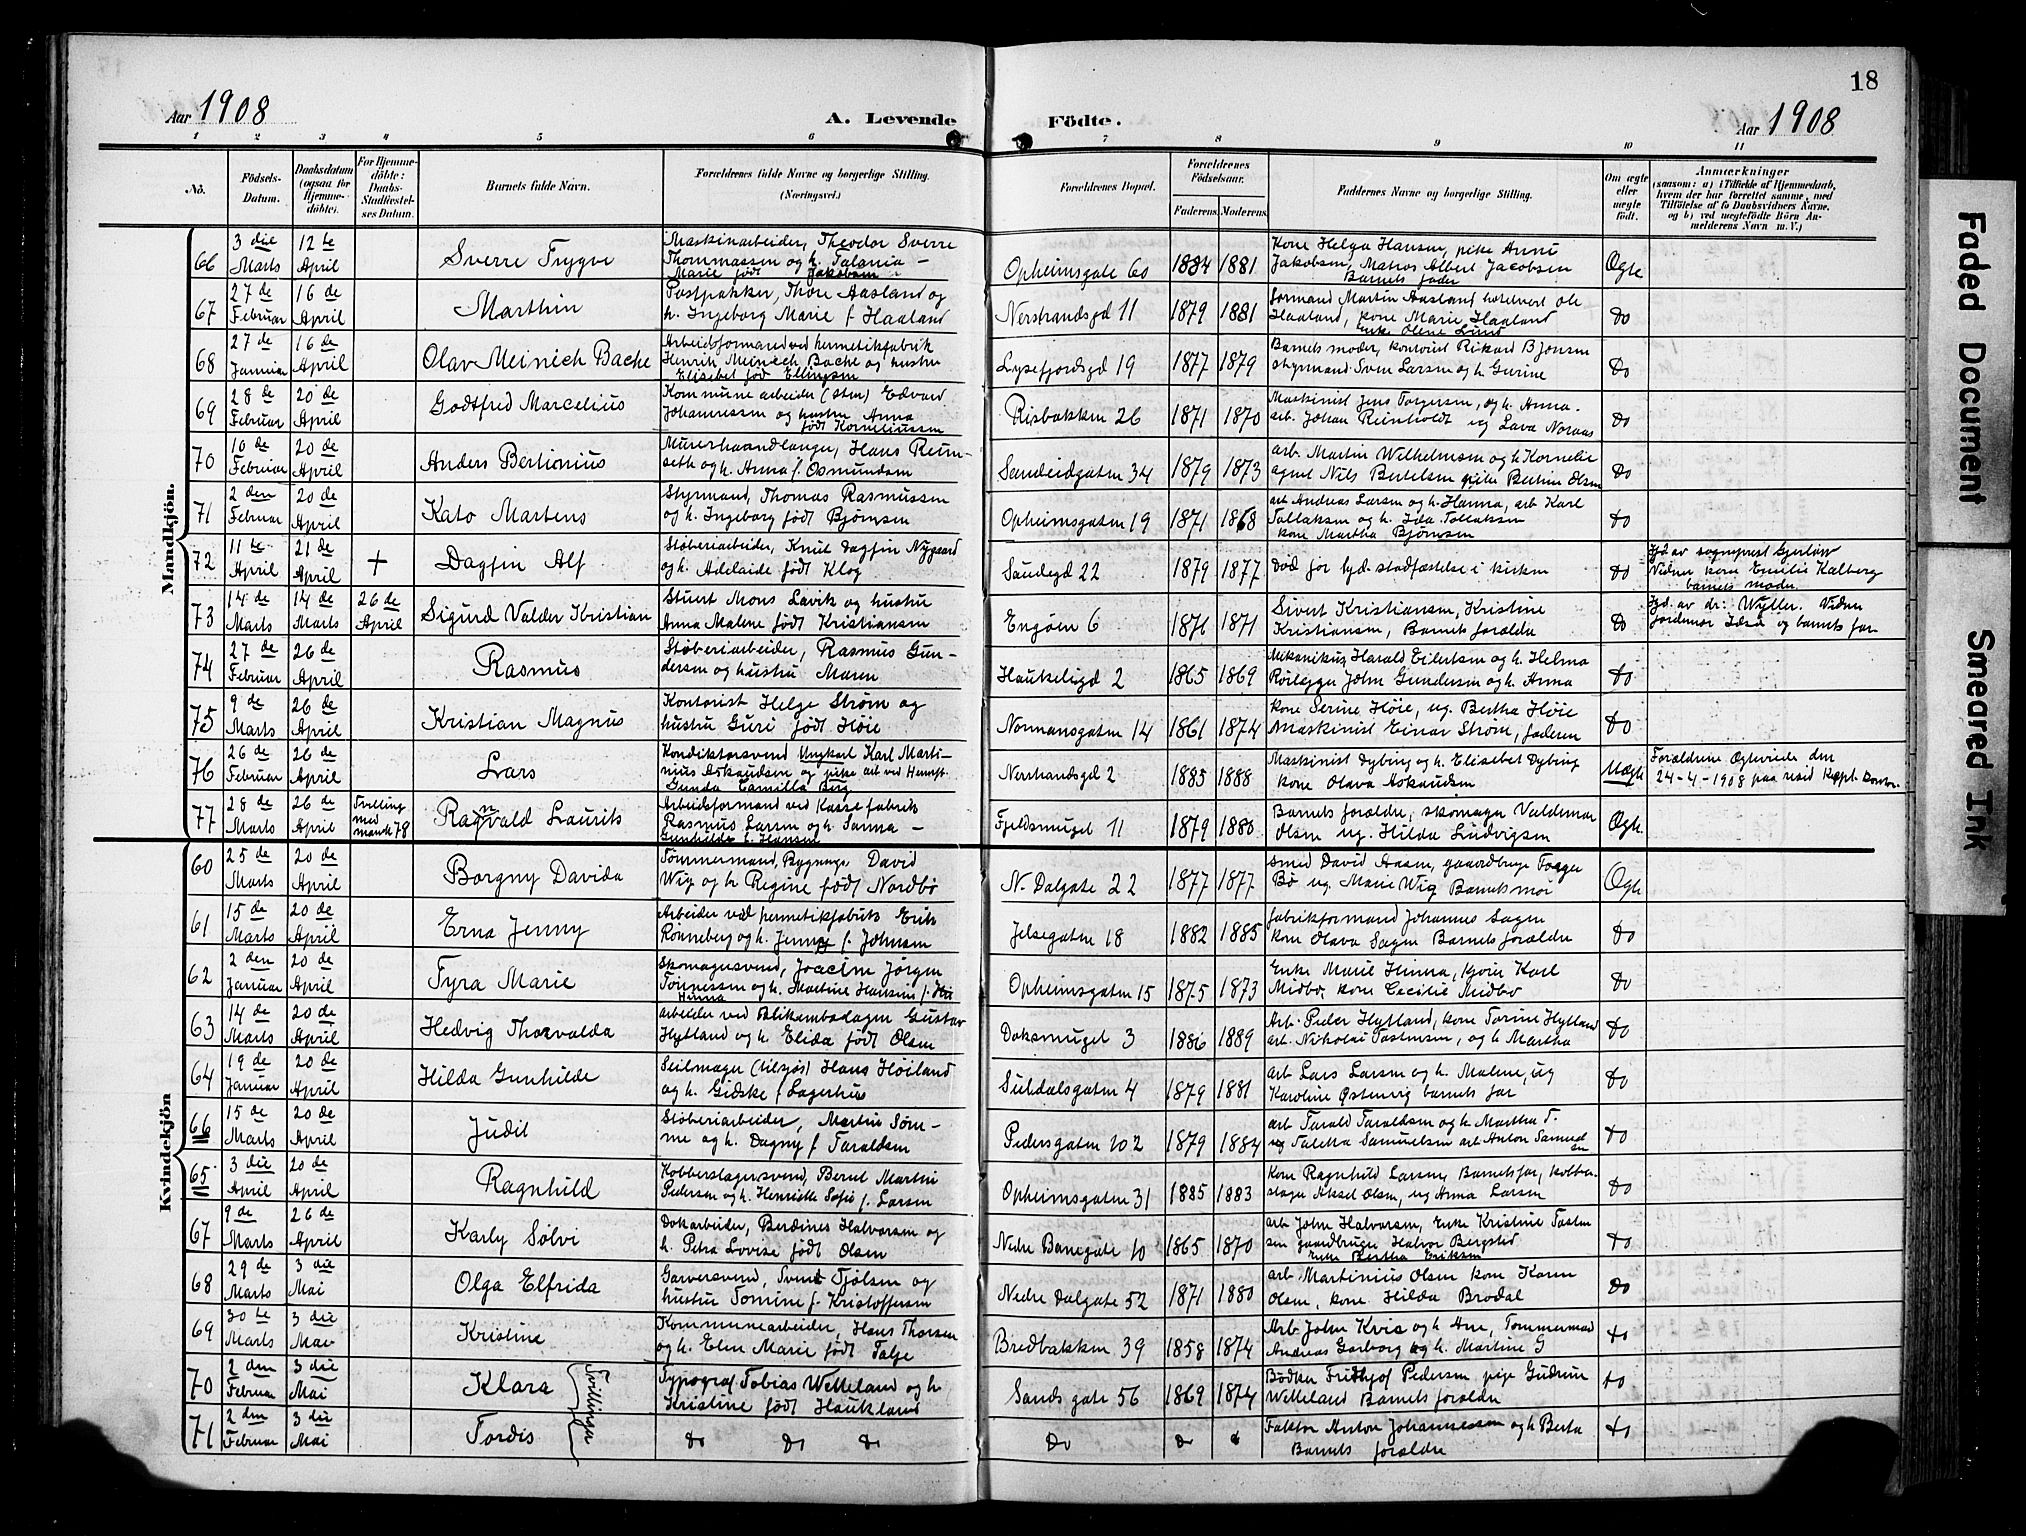 18
Aar 1908
A. Levende Födte.
Aar 1908
1 2 3 4 5 6 7 8 9 10 11
No.
Födsels-Datum.
Daabsdatum (ogsaa for Hjemme-döbte).
For Hjemme-döbte: Daabs-Stadfæstel-ses Datum.
Barnets fulde Navn.
Forældrenes fulde Navne og borgerlige Stilling. (Næringsvei.)
Forældrenes Bopæl.
Forældrenes Födselsaar.
Faderens. Moderens.
Faddernes Navne og borgerlige Stilling.
Om ægte eller uægte födt.
Anmærkninger
(saasom: a) i Tilfælde af Hjemmedaab, hvem der har forrettet samme, med Tilföielse af to Daabsvidners Navne, og b) ved uægtefödte Börn Anmelderens Navn m. V.)
Mandkjön.
66 3 die Marts 12 te April Sverre Trygve Maskinarbeider, Theodor Sverre
Thommassen og h. Talania Marie født Jakobsen Opheimsgate 60 1884 1881 Kone Helga Hansen, pike Anne
Jakobsen, Matros Albert Jacobsen Barnets fader Ægte
67 27 de Februar 16 de April Marthin Postpakker, Thore Aasland og
h. Ingeborg Marie f. Haaland Nerstrandsgd 11 1879 1881 formand Martin Aasland hotelvert Ole
Haaland, kone Marie Haaland Enke Olene Lund do
68 27 de Januar 16 de April Olav Meinich Bache Arbeidsformand ved hermetikfabrik
Henrik Meinich Bache og hustru
Elisabet født Ellingsen Lysefjordsgd 19 1877 1879 Barnets moder, kontorist Rikard Bjønsen
styrmand Sven Larsen og h. Gurine do
69 28 de Februar 20 de April Godtfred Marcelius Kommune arbeider (sten) Edvard
Johannessen og hustru Anna
født Korneliussen Risbakken 26 1871 1870 Maskinist Jens Torgersen, og h. Anna.
arb. Johan Reinholdt ug Lava Noraas do
70 10 de Februar 20 de April Anders Bertionius Murerhaandlanger, Hans Reim-
seth og h. Anna f. Osmundsen Sandeidgaten 34 1879 1873 arb. Martin Wilhelmsen og h Kornelie
agent Nils Bertelsen pike Bertine Olsen do
71 2 den Februar 20 de April Kato Martens Styrmand, Thomas Rasmussen
og h. Ingeborg født Bjørnsen Opheimsgaten 19 1871 1868 arb Andreas Larsen og h. Hanna, arb Karl
Tollaksen og h. Ida Tollaksen
kone Martha Bjørnsen do
72 11 te April 21 de April + Dagfin Alf Støberiarbeider, Knut Dagfin Nygaard
og h. Adelaide født Klog Saudegd 22 1879 1877 Død før hjd. stadfæstelse i kirken do Hjd av sogneprest Gjerløw
Vidner kone Emilie Kalberg
barnets moder
73 14 de Marts 14 de Marts 26 de April Sigurd Valder Kristian Stuert Mons Lavik og hustru
Anna Malene født Kristiansen Engøen 6 1871 1871 Sivert Kristiansen, Kristine
Kristiansen, Barnets forældre do Hjd. av dr: Wyller. Vidner
Jordemor Idsø og barnets far
74 27 de Februar 26 de April Rasmus Støberiarbeider, Rasmus Gun-
dersen og hustru Maren Haukeligd 2 1865 1869 Mekanikus Harald Eilertsen og h. Helma
Rørlegger John Gundersen og h. Anna do
75 9 de Marts 26 de April Kristian Magnus Kontorist Helge Strøm og
hustru Guri født Høie Normansgaten 14 1861 1874 Kone Serine Høie, ug. Bertha Høie
Maskinist Einar Strøm, faderen do
76 26 de Februar 26 de April Lars Konditorsvend Ungkarl Karl Marti-
nius Askaudsen og pike arb ved Hermft.
Gunda Camilla Berg Nerstrandsgd 2 1885 1888 Maskinist Dybing og h. Elisabet Dybing
kone Olava Askaudsen Uægte Forældrene Ægteviede den
24-4-1908 paa resid Kapl. Kontor.
77 28 de Marts 26 de April Tvilling med mandk 78 Ragnvald Laurits Arbeidsformand ved Kassefabrik
Rasmus Larsen og h. Sanna
Gunhilde f. Hansen Fjeldsmuget 11 1879 1880 Barnets forældre, skomager Valdemar
Olsen ug. Hilda Ludvigsen Ægte
Kvindekjön
60 25 de Marts 20 de April Borgny Davida Tømmermand, Bygnings David
Wig og h Regine født Nordbø N. Dalgate 22 1877 1877 smed David Aasen, gaardbruger Torger
Bø ug. Marie Wig Barnets mor Ægte
61 15 de Marts 20 de April Erna Jenny Arbeider ved hermetikfabrik Erik
Rønneberg og h. Jenny f. Johnsen Jelsegaten 18 1882 1885 fabrikformand Johannes Sagen
kone Olava Sagen Barnets forældre do
62 2 den Januar 20 de April Tyra Marie Skomagersvend, Joacim Jørgen
Tønnessen og h. Martine Hansine f.
Hinna Opheimsgaten 15 1875 1873 Enke Marie Hinna, kone Karl
Midbø, kone Cecilie Midbø do
63 14 de Marts 20 de April Hedvig Thorvalda arbeider ved Blikemballagen Gustav
Hytland og h. Elida født Olsen Doksmuget 3 1886 1889 Arb. Peder Hytland, kone Torine Hytland
arb. Nikolai Tastensen, og h Martha do
64 19 de Januar 20 de April Hilda Gunhilde Seilmager (tilsjøs) Hans Høiland
og h. Gidske f Lagerhus Suldalsgaten 4 1879 1881 arb Lars Larsen og h. Malene, ug
Karoline Østenvig barnets far do
66 15 de Marts 20 de April Judit Støberiarbeider, Martin Søn-
ne og h. Dagny f Taraldsen Pedersgaten 102 1879 1884 arb Tarald Taraldsen og h Martha T.
ug Taletta Samuelsen arb Anton Samuelsen do
65 3 die April 20 de April Ragnhild Kobberslagersvend, Bernt Martin
Pedersen og h. Henriette Sofie f. Larsen Opheimsgaten 31 1885 1883 Kone Ragnhild Larsen, Barnets far, kobber-
slager Aksel Olsen, ug Anna Larsen do
67 9 de Marts 26 de April Karly Sølvi Dokarbeider, Berdines Halvorsen og
h. Petra Lovise født Olsen Nedre Banegate 10 1865 1870 arb John Halvorsen, Enke Kristine Tasten
sen gaardbruger Halvor Bergsted
Enke Bertha Eriksen do
68 29 de Marts 3 die Mai Olga Elfrida Garversvend, Svend Tjølsen og
hustru Tomine f. Kristoffersen Nedre Dalgate 52 1871 1880 arb Martinius Olsen kone Karen
Olsen, kone Hilda Brodal do
69 30 te Marts 3 die Mai Kristine Kommunearbeider, Hans Thorsen
og h. Elen Marie født Talje Bredbakken 39 1858 1874 Arb John Kvie og h Ane, Tømmermand
Andreas Garborg og h. Martine G do
70 2 den Februar 3 die Mai Klara Tvillinger Typograf Tobias Wetteland og h
Kristine født Haukland Sandsgate 56 1869 1874 Bødker Fridtjof Pedersen pige Gudrun
Wetteland Barnets forældre do
71 2 den Februar 3 die Mai Tordis do do do do do do Faktor Anton Johannessen og h Berta
Barnets forældre do
Faded Document
Smeared Ink